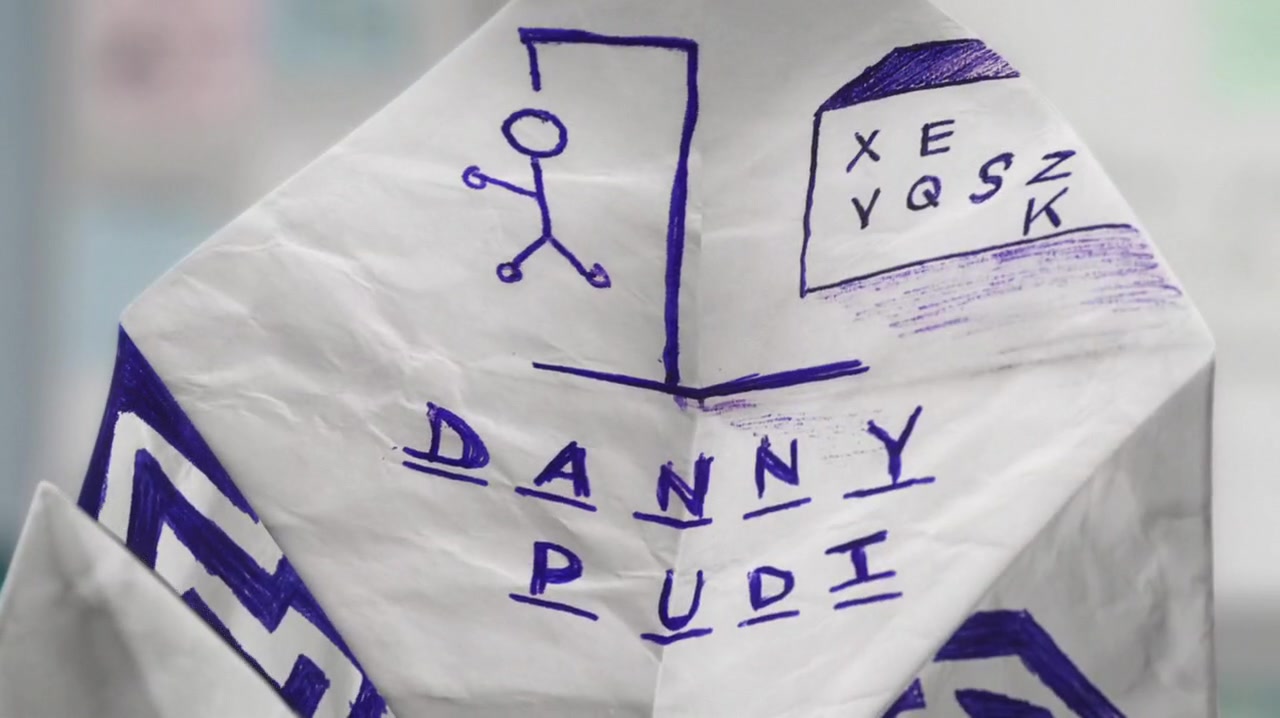 X E
V Q S Z
K
DANNY
PUDI